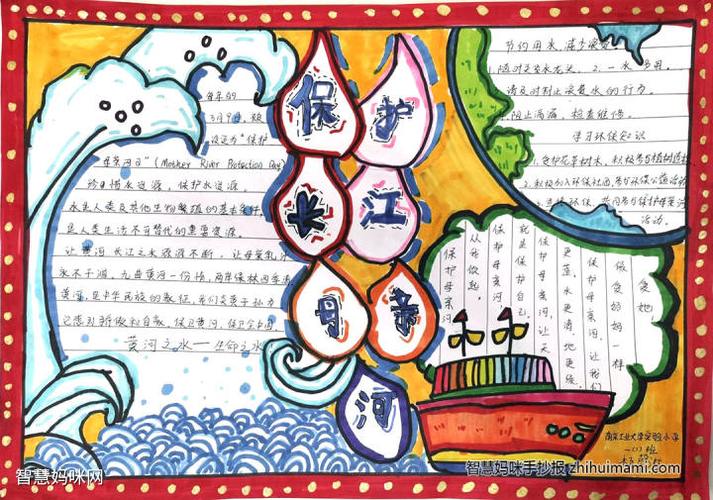 保护
长江
母亲
河
每年的
设定为“保护
母亲河日”(Mother River Protection Day)
珍惜水资源,保护水资源。
水是人类及其他生物繁殖的基本条件,
是人类生活不可替代的重要资源。
让黄河长江之水源源不断,让母亲乳汁
永不干涸。九曲黄河一份情,两岸保林四季清
黄河,是中华民族的象征,我们炎黄子孙力
黄河之水——生命之水
节约用水,减少浪费
1.随时关紧水龙头。2.一水多用。
请及时制止浪费水的行为。
阻止滴漏,检查维修。
学习环保知识
1.爱护花草树木,积极参与植树造林
2.积极加入环保社团,参与环保公益活动
活动。
像爱妈妈一样
保护母亲河,让我们
更蓝,水更清,地更绿。
保护母亲河,让天
就是保护自己,
保护母亲河
从我做起,
保护母亲河
南京工业大学实验小学
一(1)班
智慧妈咪网
智慧妈咪手抄报 zhihuimami.com